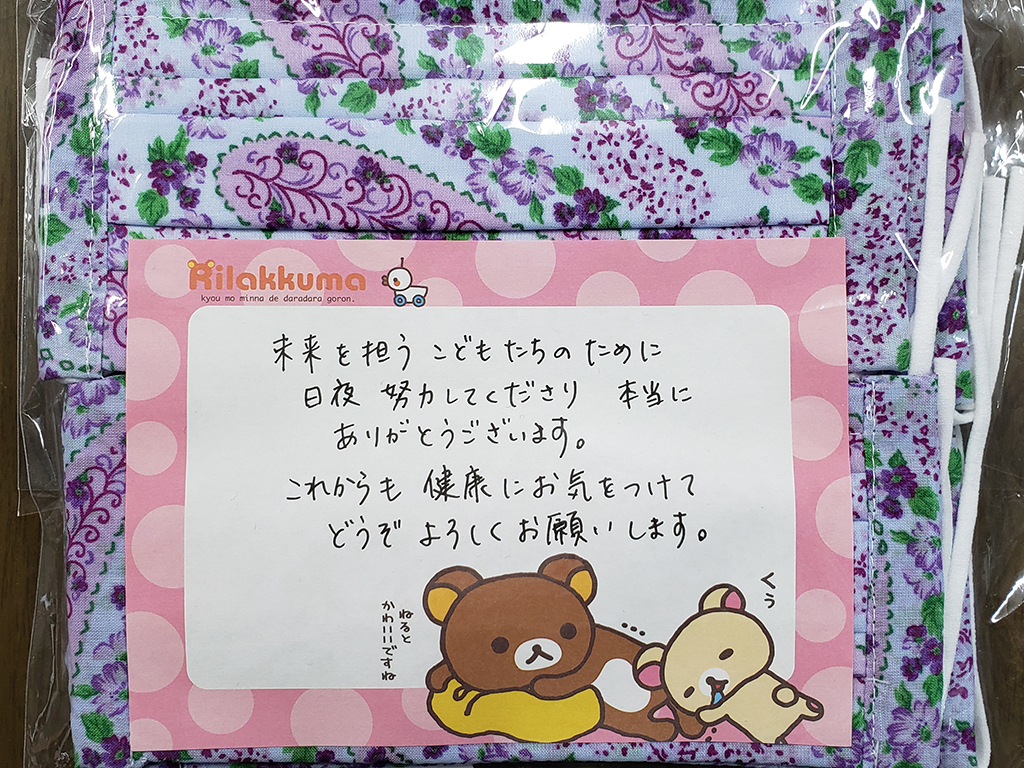 Rilakkuma
kyou mo minna de daradara goron.
未来を担う こどもたちのために
日夜 努力してくださり 本当に
ありがとうございます。
これからも 健康にお気をつけて
どうぞ よろしくお願いします。
くぅ
ねると
かわいいですね